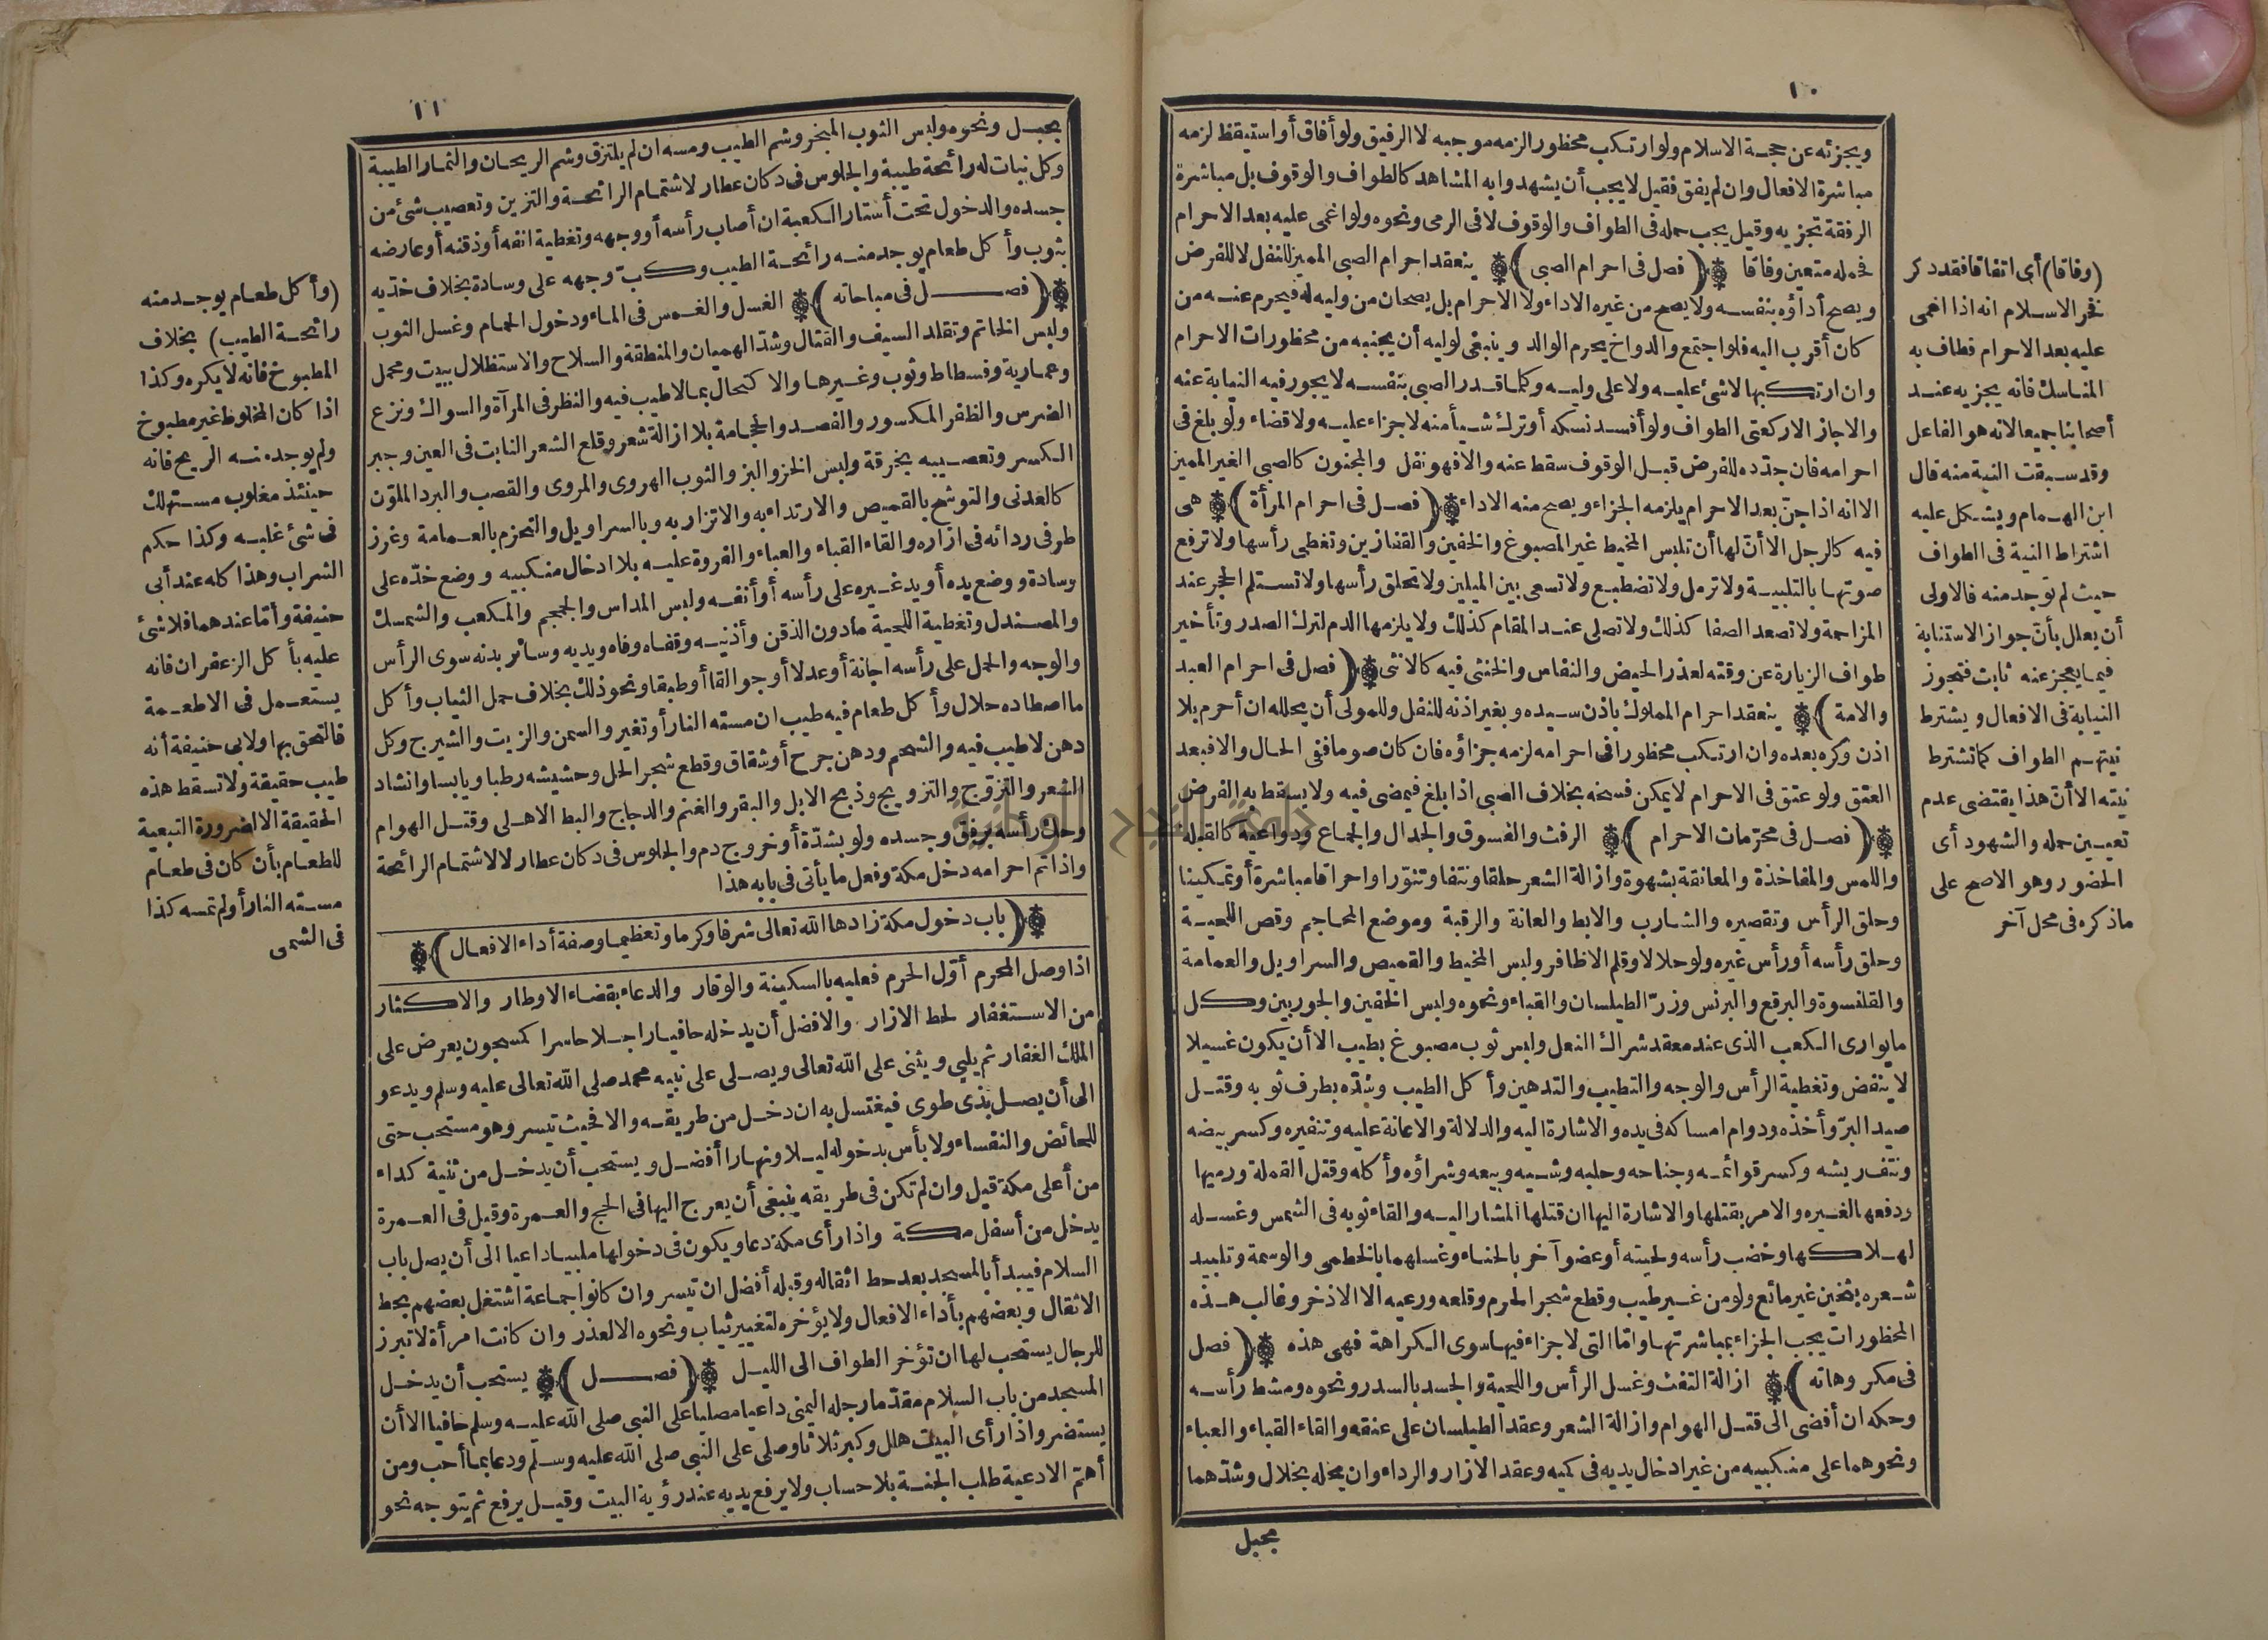 ١٠
ويجزئه عن حجة الاسلام ولو ارتكب محظورا لزمه موجبه لا الرفيق ولو أفاق أو استيقظ لزمه
مباشرة الافعال وان لم يفق فقيل لا يجب أن يشهدوا به المشاهد كالطواف والوقوف بل مباشرة
الرفقة تجزيه وقيل يجب حمله فى الطواف والوقوف لا فى الرمى ونحوه ولو اغمى عليه بعد الاحرام
فحمله متعين وفاقا (فصل فى احرام الصبى) ينعقد احرام الصبى المميز للنفل لا للفرض
ويصح أداؤه بنفسه ولا يصح من غيره الاداء ولا الاحرام بل يصحان من وليه له فيحرم عنه من
كان أقرب اليه فلو اجتمع والد واخ يحرم الوالد وينبغى لوليه أن يجنبه من محظورات الاحرام
وان ارتكبها لا شئ عليه ولا على وليه وكلما قدر الصبى بنفسه لا يجوز فيه النيابة عنه
والا جاز الا ركعتى الطواف ولو أفسد نسكه أو ترك شيأ منه لا جزاء عليه ولا قضاء ولو بلغ فى
احرامه فان جدّده للفرض قبل الوقوف سقط عنه والا فهو نفل والمجنون كالصبى الغير المميز
الا انه اذا جنّ بعد الاحرام يلزمه الجزاء ويصح منه الاداء (فصل فى احرام المرأة) هى
فيه كالرجل الا أنّ لها أن تلبس المخيط غير المصبوغ والخفين والقفازين وتغطى رأسها ولا ترفع
صوتها بالتلبية ولا ترمل ولا تضطبع ولا تسعى بين الميلين ولا تحلق رأسها ولا تستلم الحجر عند
المزاحمة ولا تصعد الصفا كذلك ولا تصلى عند المقام كذلك ولا يلزمها الدم لترك الصدر وتأخير
طواف الزيارة عن وقته لعذر الحيض والنفاس والخنثى فيه كالانثى (فصل فى احرام العبد
والامة) ينعقد احرام المملوك باذن سيده وبغير اذنه للنفل وللمولى أن يحلله ان أحرم بلا
اذن وكره بعده وان ارتكب محظورا فى احرامه لزمه جزاؤه فان كان صوما ففى الحال والا فبعد
العتق ولو عتق فى الاحرام لا يمكن فسخه بخلاف الصبى اذا بلغ فيمضى فيه ولا يسقط به الفرض
(فصل فى محرّمات الاحرام) الرفث والفسوق والجدال والجماع ودواعيه كالقبلة
واللمس والمفاخذة والمعانقة بشهوة وازالة الشعر حلقا ونتفا وتنوّرا واحراقا مباشرة أو تمكينا
وحلق الرأس وتقصيره والشارب والابط والعانة والرقبة وموضع المحاجم وقص اللحية
وحلق رأسه أو رأس غيره ولو حلالا وقلم الاظافر ولبس المخيط والقميص والسراويل والعمامة
والقلنسوة والبرقع والبرنس وزرّ الطيلسان والقباء ونحوه ولبس الخفين والجوربين وكل
ما يوارى الكعب الذى عند معقد شراك النعل ولبس ثوب مصبوغ بطيب الا أن يكون غسيلا
لا ينفض وتغطية الرأس والوجه والتطيب والتدهين وأكل الطيب وشدّه بطرف ثوبه وقتل
صيد البرّ وأخذه ودوام امساكه فى يده والاشارة اليه والدلالة والاعانة عليه وتنفيره وكسر بيضه
ونتف ريشه وكسر قوائمه وجناحه وحلبه وشيه وبيعه وشراؤه وأكله وقتل القملة ورميها
ودفعها لغيره والامر بقتلها والاشارة اليها ان قتلها المشار اليه والقاء ثوبه فى الشمس وغسله
لهلاكها وخضب رأسه ولحيته أو عضو آخر بالحناء وغسلهما بالخطمى والوسمة وتلبيد
شعره بثخين غير مائع ولو من غير طيب وقطع شجر الحرم وقلعه ورعيه الا الاذخر وغالب هذه
المحظورات يجب الجزاء بمباشرتها وامّا التى لا جزاء فيها سوى الكراهة فهى هذه (فصل
فى مكروهاته) ازالة التفث وغسل الرأس واللحية والجسد بالسدر ونحوه ومشط رأسه
وحكه ان أفضى الى قتل الهوام وازالة الشعر وعقد الطيلسان على عنقه والقاء القباء والعباء
ونحوهما على منكبيه من غير ادخال يديه فى كميه وعقد الازار والرداء وان يخله بخلال وشدّهما
بحبل
(وفاقا) أى اتفاقا فقد ذكر
فخر الاسلام انه اذا اغمى
عليه بعد الاحرام فطاف به
المناسك فانه يجزيه عند
أصحابنا جميعا لانه هو الفاعل
وقد سبقت النية منه قال
ابن الهمام ويشكل عليه
اشتراط النية فى الطواف
حيث لم توجد منه فالاولى
أن يعلل بأنّ جواز الاستنابة
فيما يعجز عنه ثابت فتجوز
النيابة فى الافعال ويشترط
نيتهم الطواف كما تشترط
نيته الا أنّ هذا يقتضى عدم
تعيين حمله والشهود أى
الحضور وهو الاصح على
ما ذكره فى محل آخر
١١
بحبل ونحوه ولبس الثوب المبخر وشم الطيب ومسه ان لم يلتزق وشم الريحان والثمار الطيبة
وكل نبات له رائحة طيبة والجلوس فى دكان عطار لاشتمام الرائحة والتزين وتعصيب شئ من
جسده والدخول تحت أستار الكعبة ان أصاب رأسه أو وجهه وتغطية انفه أو ذقنه أو عارضه
بثوب وأكل طعام يوجد منه رائحة الطيب وكبّ وجهه على وسادة بخلاف خدّيه
(فصل فى مباحاته) الغسل والغمس فى الماء ودخول الحمام وغسل الثوب
ولبس الخاتم وتقلد السيف والقتال وشدّ الهميان والمنطقة والسلاح والاستظلال ببيت ومحمل
وعمارية وفسطاط وثوب وغيرها والاكتحال بما لا طيب فيه والنظر فى المرآة والسواك ونزع
الضرس والظفر المكسور والفصد والحجامة بلا ازالة شعر وقلع الشعر النابت فى العين وجبر
الكسر وتعصيبه بخرقة ولبس الخز والبز والثوب الهروى والمروى والقصب والبرد الملوّن
كالعدنى والتوشح بالقميص والارتداء به والاتزار به وبالسراويل والتحزم بالعمامة وغرز
طرفى ردائه فى ازاره والقاء القباء والعباء والفروة عليه بلا ادخال منكبيه ووضع خدّه على
وسادة ووضع يده أو يد غيره على رأسه أو أنفه ولبس المداس والجمجم والمكعب والشمسك
والمصندل وتغطية اللحية ما دون الذقن وأذنيه وقفاه وفاه ويديه وسائر بدنه سوى الرأس
والوجه والحمل على رأسه اجانة أو عدلا أو جوالقا أو طبقا ونحو ذلك بخلاف حمل الثياب وأكل
ما اصطاده حلال وأكل طعام فيه طيب ان مسته النار أو تغير والسمن والزيت والشيرج وكل
دهن لا طيب فيه والشحم ودهن جرح أو شقاق وقطع شجر الحل وحشيشه رطبا ويابسا وانشاد
الشعر والتزوّج والتزويج وذبح الابل والبقر والغنم والدجاج والبط الاهلى وقتل الهوام
وحك رأسه برفق وجسده ولو بشدّة أو خروج دم والجلوس فى دكان عطار لا لاشتمام الرائحة
واذا تم احرامه دخل مكة وفعل ما يأتى فى بابه هذا
(باب دخول مكة زادها الله تعالى شرفا وكرما وتعظيما وصفة أداء الافعال)
اذا وصل المحرم أوّل الحرم فعليه بالسكينة والوقار والدعاء بقضاء الاوطار والاكثار
من الاستغفار لحط الازار والافضل أن يدخله حافيا راجلا حاسرا كمسجون يعرض على
الملك الغفار ثم يلبى ويثنى على الله تعالى ويصلى على نبيه محمد صلى الله تعالى عليه وسلم ويدعو
الى أن يصل بذى طوى فيغتسل به ان دخل من طريقه والا فحيث تيسر وهو مستحب حتى
للحائض والنفساء ولا بأس بدخوله ليلا ونهارا أفضل ويستحب أن يدخل من ثنية كداء
من أعلى مكة قيل وان لم تكن فى طريقه ينبغى أن يعرج اليها فى الحج والعمرة وقيل فى العمرة
يدخل من أسفل مكة واذا رأى مكة دعا ويكون فى دخولها ملبيا داعيا الى أن يصل باب
السلام فيبدأ بالمسجد بعد حط اثقاله وقبله أفضل ان تيسر وان كانوا جماعة اشتغل بعضهم بحط
الاثقال وبعضهم بأداء الافعال ولا يؤخره لتغيير ثياب ونحوه الا لعذر وان كانت امرأة لا تبرز
للرجال يستحب لها ان تؤخر الطواف الى الليل (فصل) يستحب أن يدخل
المسجد من باب السلام مقدّما رجله اليمنى داعيا مصليا على النبى صلى الله عليه وسلم حافيا الا أن
يستضر واذا رأى البيت هلل وكبر ثلاثا وصلى على النبى صلى الله عليه وسلم ودعا بما أحب ومن
أهمّ الادعية طلب الجنة بلا حساب ولا يرفع يديه عند رؤية البيت وقيل يرفع ثم يتوجه نحو
(وأكل طعام يوجد منه
رائحة الطيب) بخلاف
المطبوخ فانه لا يكره وكذا
اذا كان المخلوط غير مطبوخ
ولم يوجد منه الريح فانه
حينئذ مغلوب مستهلك
فى شئ غلبه وكذا حكم
الشراب وهذا كله عند أبى
حنيفة وأمّا عندهما فلا شئ
عليه بأكل الزعفران فانه
يستعمل فى الاطعمة
فالتحق بها ولابى حنيفة أنه
طيب حقيقة ولا تسقط هذه
الحقيقة الا لضرورة التبعية
للطعام بأن كان فى طعام
مسته النار أو لم تمسه كذا
فى الشمنى
جامعة النجاح الوطنية